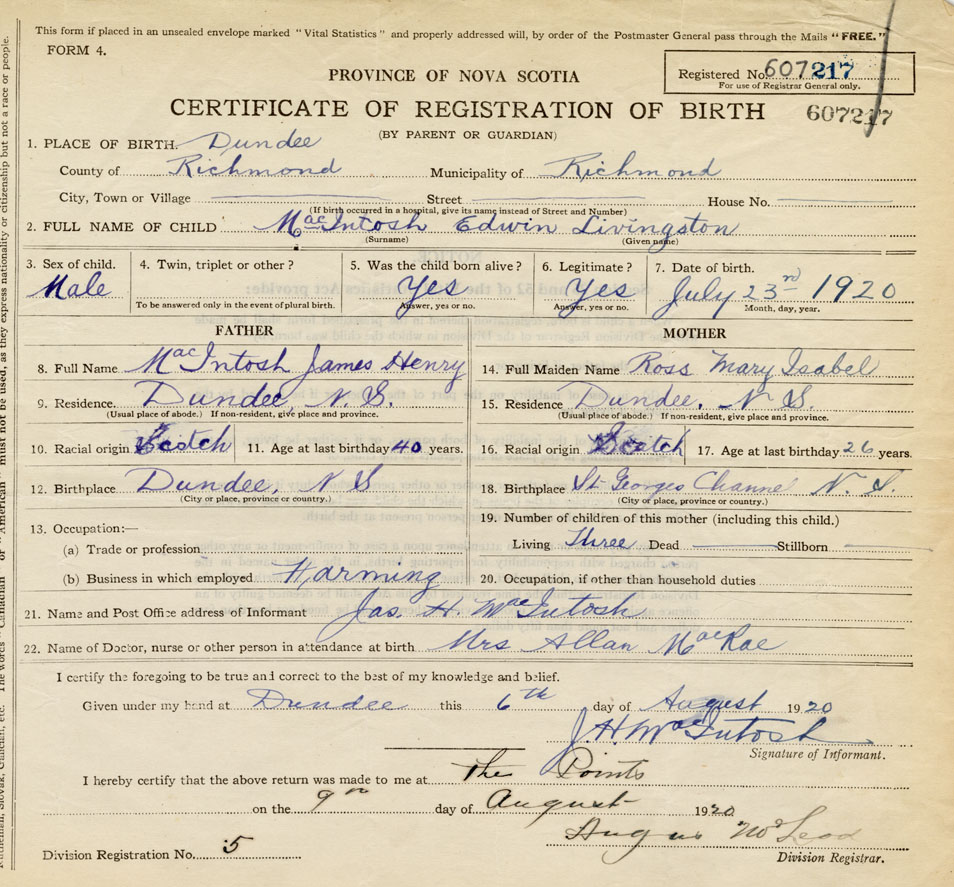 This form if placed in an unsealed envelope marked "Vital Statistics" and properly addressed will, by order of the Postmaster General pass through the Mails "FREE."
FORM 4.
PROVINCE OF NOVA SCOTIA
Registered No. 607217
For use of Registrar General only.
CERTIFICATE OF REGISTRATION OF BIRTH
607217
(BY PARENT OR GUARDIAN)
1. PLACE OF BIRTH. Dundee
County of Richmond Municipality of Richmond
City, Town or Village Street House No.
(If birth occurred in a hospital, give its name instead of Street and Number)
2. FULL NAME OF CHILD MacIntosh Edwin Livingston
(Surname) (Given name)
3. Sex of child. 4. Twin, triplet or other? 5. Was the child born alive? 6. Legitimate? 7. Date of birth.
Male Yes Yes July 23rd 1920
To be answered only in the event of plural birth. Answer, yes or no. Answer, yes or no. Month, day, year.
FATHER MOTHER
8. Full Name MacIntosh James Henry 14. Full Maiden Name Ross Mary Isabel
9. Residence. Dundee, N.S. 15. Residence Dundee, N.S.
(Usual place of abode.) If non-resident, give place and province. (Usual place of abode.) If non-resident, give place and province.
10. Racial origin Scotch 11. Age at last birthday 40 years. 16. Racial origin Scotch 17. Age at last birthday 26 years.
12. Birthplace Dundee, N S 18. Birthplace St. Georges Channel N. S.
(City or place, province or country.) (City or place, province or country.)
13. Occupation:— 19. Number of children of this mother (including this child.)
(a) Trade or profession Living Three Dead Stillborn
(b) Business in which employed Farming 20. Occupation, if other than household duties
21. Name and Post Office address of Informant Jas. H. MacIntosh
22. Name of Doctor, nurse or other person in attendance at birth Mrs Allan MacRae
I certify the foregoing to be true and correct to the best of my knowledge and belief.
Given under my hand at Dundee this 6th day of August 1920
J.H. MacIntosh
Signature of Informant.
I hereby certify that the above return was made to me at The Points
on the 9th day of August 1920
Angus McLeod
Division Registrar.
Division Registration No. 5